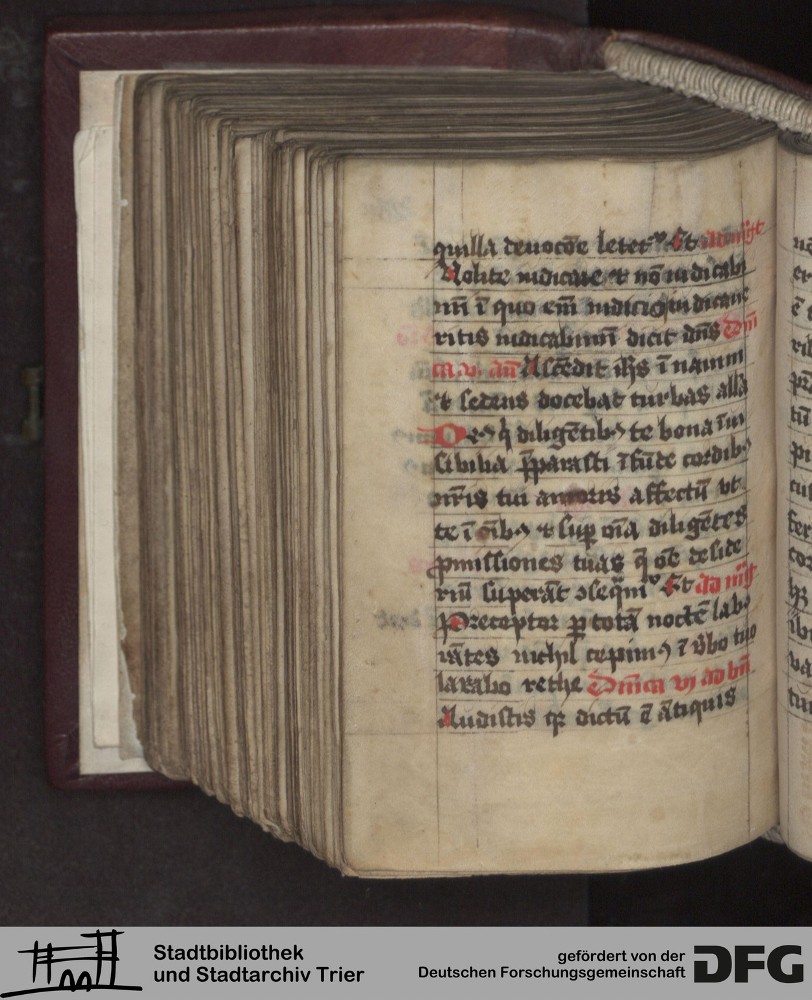 quilla deuocōe letet᷑ Et ad mgt
Nolite iudicare ⁊ nō iudicabi
mī ī quo em̄ iudicio iudicaue
ritis iudicabimī dicit dn̄s Dn̄i
ca v. an̄ Ascēdit ih̄s ī nauim
⁊ sedens docebat turbas alla
Deꝰ q̇ diligētibꝰ te bona īui
sibilia p̄parasti īfūde cordibꝰ
nr̄is tui amoris affectū vt
te ī oībꝰ ⁊ sup oīa diligētes
ꝓmissiones tuas q̄ oē deside
riū superāt ↄseq̄m᷑ Et ad mgt
Preceptor ꝑ totā noctē labo
rātes nichil cepimꝰ ī v̄bo tuo
laxabo rethe Dn̄ica vj ad bn̄
Audistis qꝛ dictū ē ātiquis
Stadtbibliothek
und Stadtarchiv Trier
gefördert von der
Deutschen Forschungsgemeinschaft
DFG